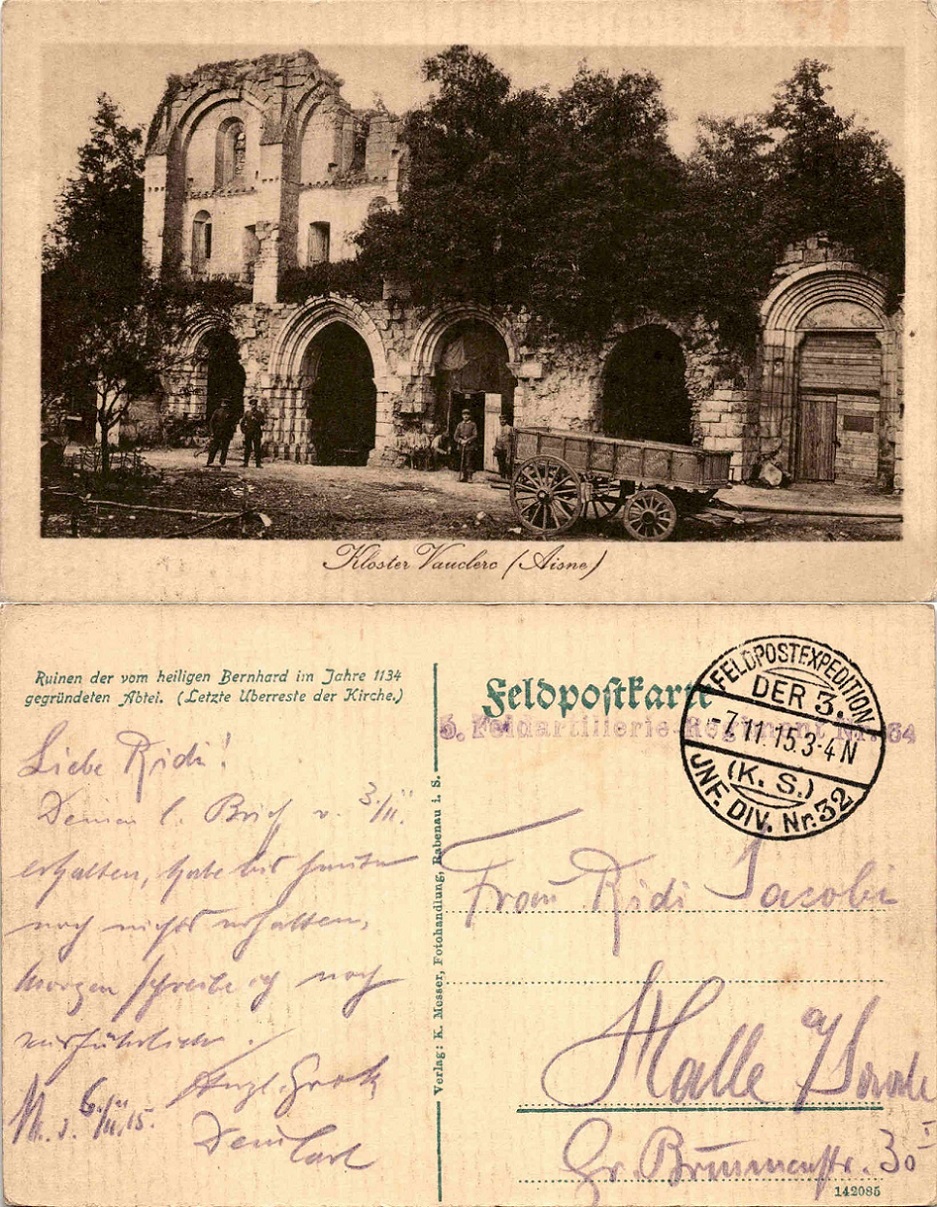 Kloster Vauclerc (Aisne)
Ruinen der vom heiligen Bernhard im Jahre 1134
gegründeten Abtei. (Letzte Uberreste der Kirche.)
Liebe Ridi!
Deinen l. Brief v. 3/11.
erhalten, habe bis heute
noch nichts erhalten,
Morgen schreibe ich noch
ausführlich.
Herzl. Gruß
6/11.15.
Dein Carl
Verlag: K. Messer, Fotohandlung, Rabenau i. S.
Feldpostkarte
5. Feldartillerie-Regiment Nr. 64
FELDPOSTEXPEDITION
DER 3.
-7.11.15.3-4N
(K. S.)
JNF. DIV. Nr. 32
Frau Ridi Jacobi
Halle a/Saale
Gr. Brunnenstr. 3
142085